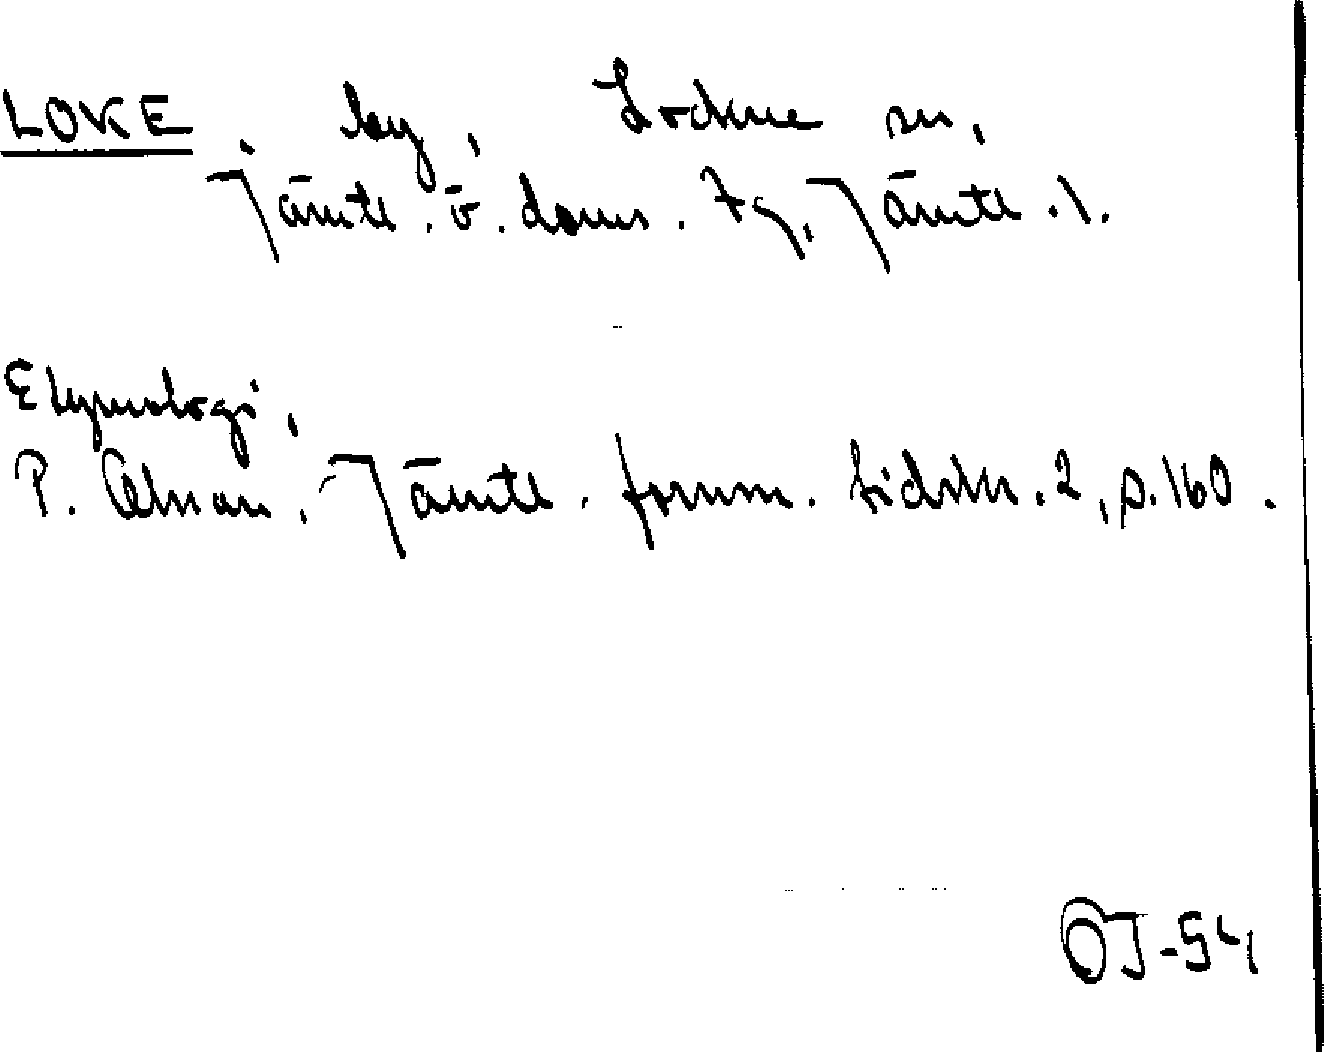 LOKE, by, Lockne sn,
Jämtl. ö. doms. tg, Jämtl. l.
Etymologi,
P. Olsson, Jämtl. fornm. tidskr. 2, s. 160.
OJ-54